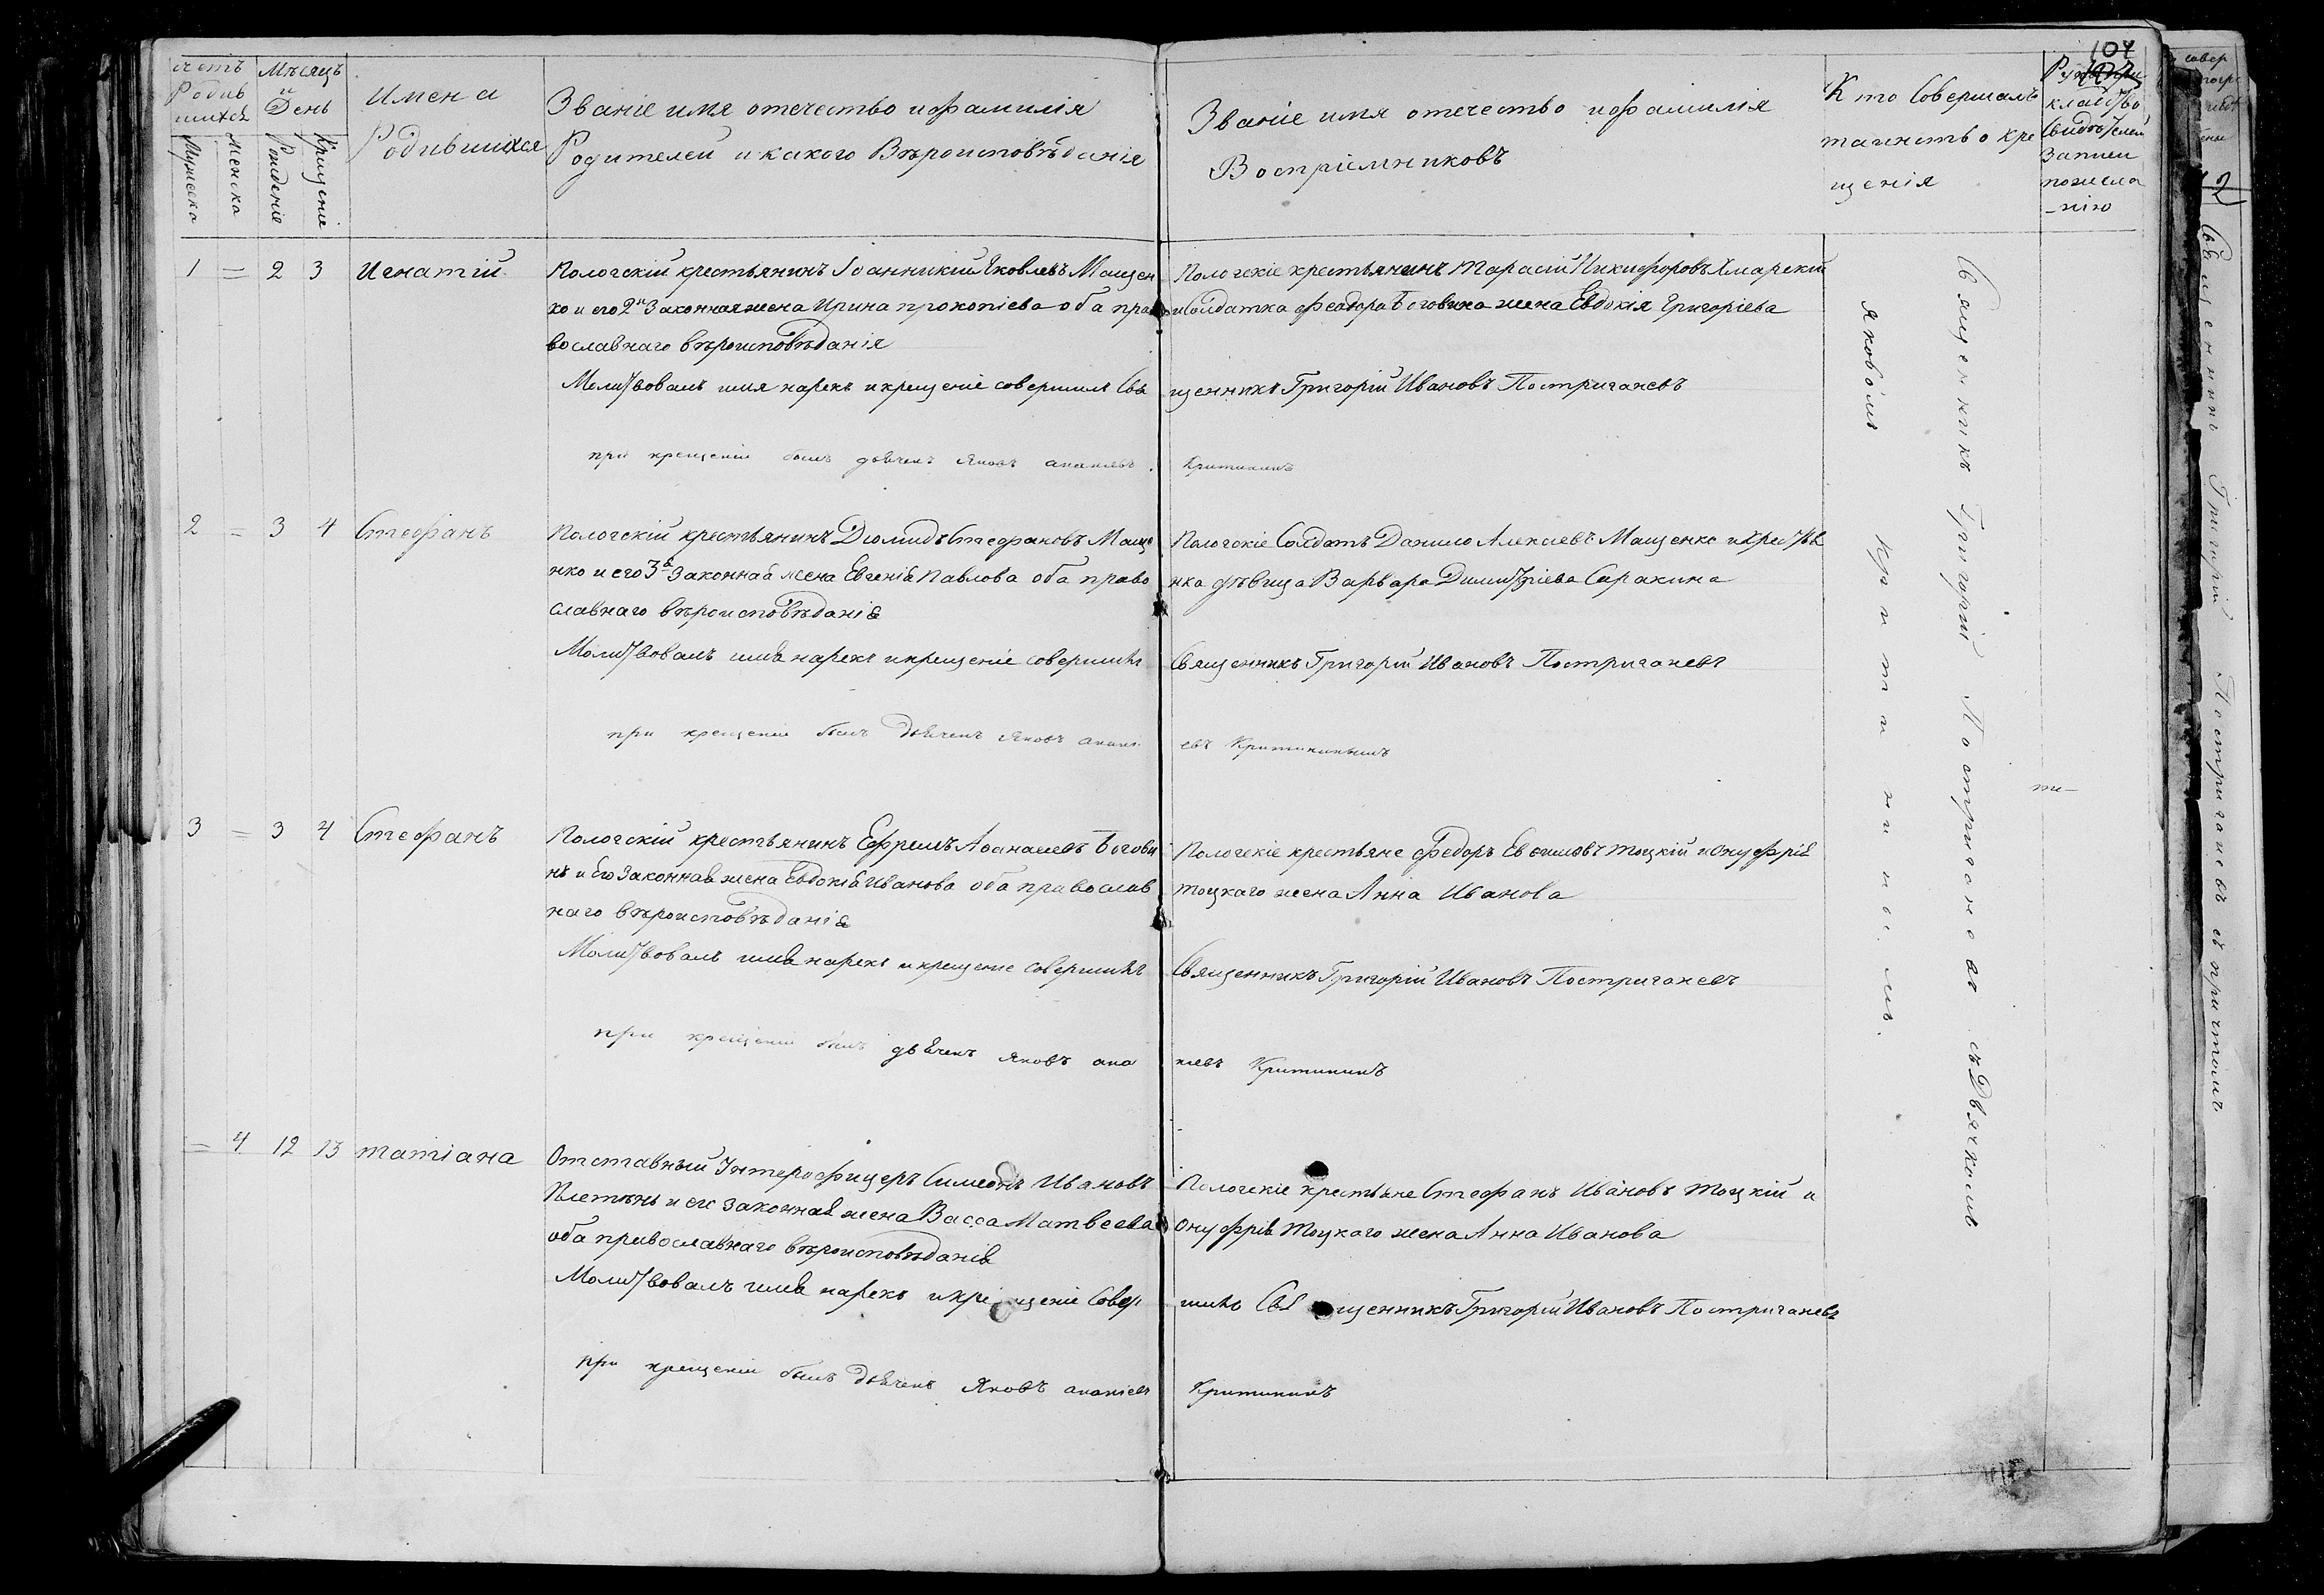 104
счетъ
Родив
шихся
Мужеска
женска
Мѣсяцъ
и
День
Рожденіе
Крещеніе
Имена
Родившихся
Званіе имя отечество и фамилія
Родителей и какого Вѣроисповѣданія
Званіе имя отечество и фамилія
Воспріемниковъ
Кто Совершалъ
таинство кре
щенія
Рукопри
кладство
Свидѣтелей
Записи
по жела
-нію
1 = 2 3 Игнатій
Пологскій крестьянинъ Іоанникій Яковлевъ Мащен
ко и его 2я Законная жена Ирина прокопіева оба пра
вославнаго вѣроисповѣданія
Молитвовалъ имя нарекъ и крещеніе совершилъ Свя
при крещеніи былъ дьячекъ Яковъ ананіевъ
Пологскіе крестьянинъ Тарасій Никифоровъ Хмарскій
и Солдатка Феодора Боговина жена Евдокія Григоріева
щенникъ Григорій Ивановъ Постригачевъ
Критининъ
2 = 3 4 Стефанъ
Пологскій крестьянинъ Діомидъ Стефановъ Маще
нко и его 3я Законная жена Евгенія Павлова оба право
славнаго вѣроисповѣданія
Молитвовалъ имя нарекъ и крещеніе совершилъ
при крещеніи былъ Дьячекъ Яковъ анані
Пологскіе Солдатъ Данило Алексѣевъ Мащенко и крестья
нка дѣвица Варвара Димитріева Саракина
Священникъ Григорій Ивановъ Постригачевъ
евъ Критининымъ
3 = 3 4 Стефанъ
Пологскій крестьянинъ Ефремъ Афанасіевъ Богови
нъ и Его Законная жена Евдокія Иванова оба православ
наго вѣроисповѣданія
Молитвовалъ имя нарекъ и крещеніе совершилъ
при крещеніи былъ дьячекъ Яковъ ана
Пологскіе крестьяне Федоръ Евфимовъ Тоцкій и Онуфрія
Тоцкаго жена Анна Иванова
Священникъ Григорій Ивановъ Постригачевъ
ніевъ Критининъ
= 4 12 13 татіана
Отставный Унтерофицеръ Симеонъ Ивановъ
Плетѣнь и его законная жена Васса Матвеева
оба православнаго вѣроисповѣданія
Молитвовалъ имя нарекъ и крещеніе Совер
при крещеніи былъ Дьячекъ Яковъ ананіевъ
Пологскіе крестьяне Стефанъ Ивановъ Тоцкій и
Онуфрія Тоцкаго жена Анна Иванова
шилъ Священникъ Григорій Ивановъ Постригачевъ
Критининъ
Священникъ Григорій Постригачевъ съ Дьячкомъ
Яковомъ Критининомъ.
2
Священникъ Григорій Постригачевъ съ причтомъ